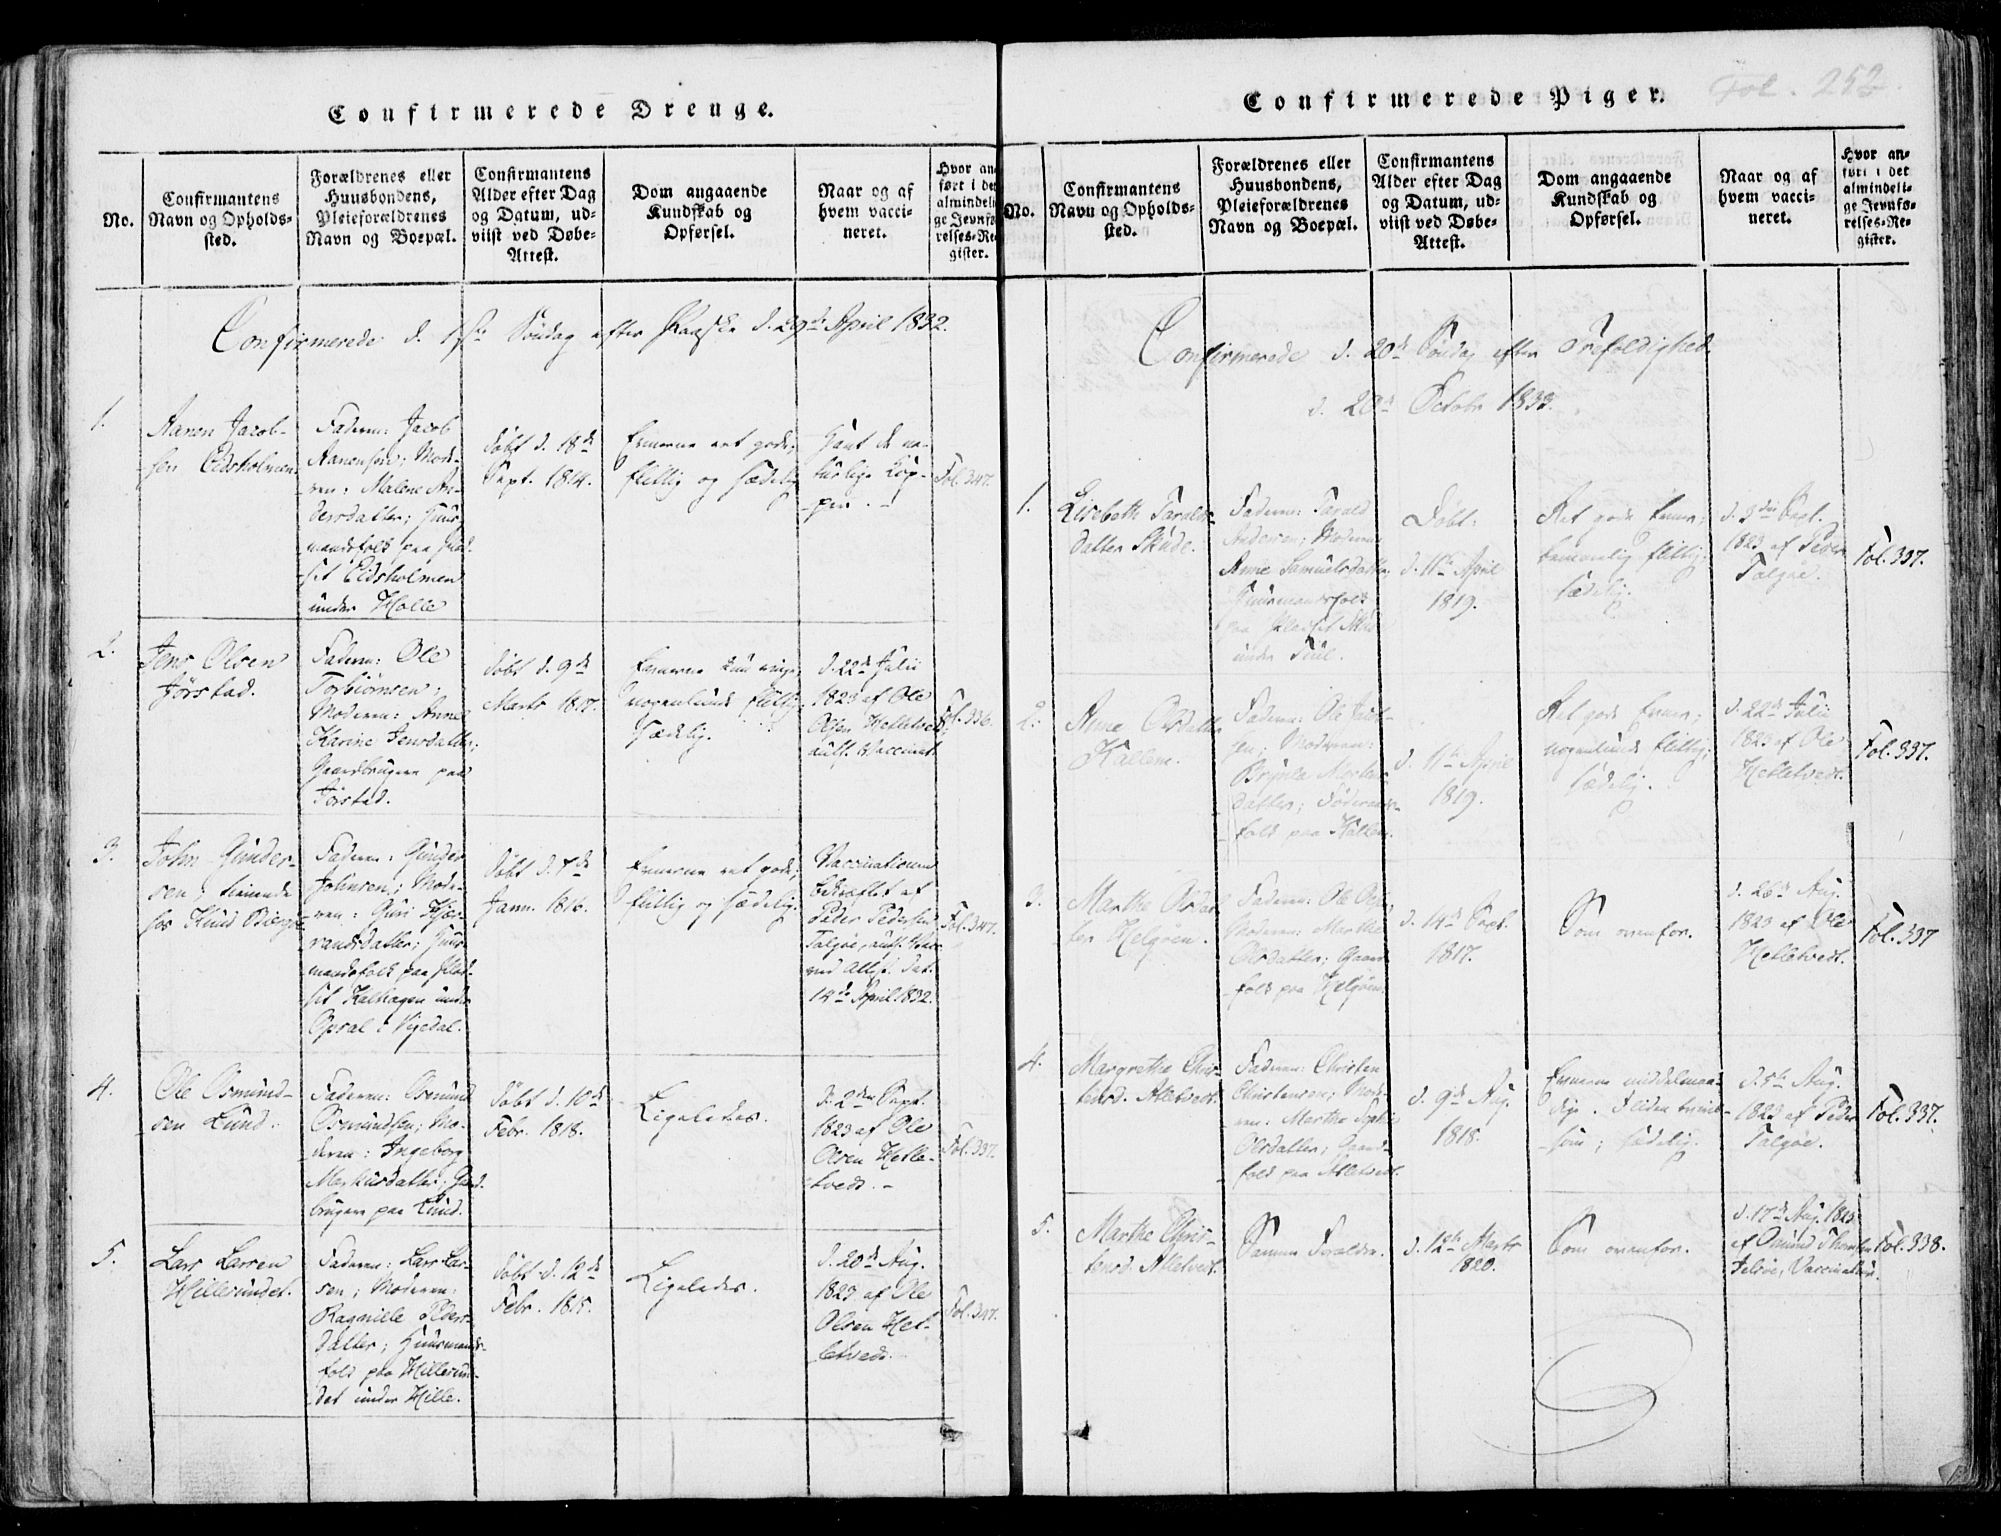 Confirmerede Drenge.
No.
Confirmantens
Navn og Opholds-
sted.
Forældrenes eller
Huusbondens,
Pleieforældrenes
Navn og Boepæl.
Confirmantens
Alder efter Dag
og Datum, ud-
viist ved Døbe-
Attest.
Dom angaaende
Kundskab og
Opførsel.
Naar og af
hvem vacci-
neret.
Hvor an
ført i det
almindeli
ge Jevnfø
relses-Re
gister.
Confirmerede d. 1ste Søndag efter Paaske d. 29de April 1832.
1.
Aanen Jacob-
sen Eidsholmen
Faderen: Jacob
Aanensen; Mode-
ren: Malene An-
dersdatter; Huus-
mandsfolk paa Plad-
sen Eidsholmen
under Holle
døbt d. 18de
Sept. 1814.
Evnerne ret gode;
flittig og sædelig
Havt de na-
turlige Kop-
per. -
Fol. 347.
2.
Jens Olsen
Jørstad.
Faderen: Ole
Torbiørnsen;
Moderen: Anne
Karine Jensdatter;
Gaardbrugere paa
Jørstad.
døbt d. 9de
Marts 1817.
Evnerne kun ringe;
nogenlunde flittig;
sædelig.
d. 22de Julii
1823 af Ole
Olsen Hetletvedt,
auth. Vaccinat.
Fol. 336.
3.
John Gunder-
sen, tienende
hos Knud Biergøe
Faderen: Gunder
Johnsen; Mode-
ren: Guri
randsdatter; Huus-
mandsfolk paa Plad-
sen Kalhagen under
Opsal i Vigedal.
døbt d. 7de
Janu. 1816.
Evnerne ret gode;
flittig og sædelig.
Vaccinationen
bekræftet af
Peder Pedersen
Talgøe, auth. Vac.
ved Attest. dat.
14de April 1832.
Fol. 347.
4.
Ole Osmund-
sen Lund.
Faderen: Osmund
Osmundsen; Mo-
deren: Ingeborg
Markusdatter; Gaard-
brugere paa Lund.
døbt d. 10de
Febr. 1818.
Ligeledes.
d. 2den Sept.
1823 af Ole
Olsen Hetle-
tvedt. -
Fol. 337.
5.
Lars Larsen
Hillesundet.
Faderen: Lars Lar-
sen; Moderen:
Ragnilde Peders-
datter; Huusmands-
folk paa Hillesun-
det under Hille.
døbt d. 12de
Febr. 1815.
Ligeledes.
d. 20de Aug.
1823 af Ole
Olsen Het-
letvedt.
Fol. 347.
Confirmerede Piger.
Fol. 252.
No.
Confirmantens
Navn og Opholds-
sted.
Forældrenes eller
Huusbondens,
Pleieforældrenes
Navn og Boepæl.
Confirmantens
Alder efter Dag
og Datum, ud-
viist ved Døbe-
Attest.
Dom angaaende
Kundskab og
Opførsel.
Naar og af
hvem vacci-
neret.
Hvor an-
ført i det
almindeli-
ge Jevnfø-
relses-Re-
gister.
Confirmerede d. 20de Søndag efter Trefoldighed.
d. 20de Octobr 1833.
1.
Lisebeth Taralds-
datter Skude.
Faderen: Tarald
Andersen; Moderen
Anne Samuelsdatter;
Huusmandsfolk
paa Pladset
under
Døbt:
d. 11te April
1819.
Ret gode Evner;
temmelig flittig;
sædelig.
d. 3die Sept.
1823 af Peder
Talgøe.
Fol. 337.
2.
Anne Olsdatter
Kallem.
Faderen: Ole
sen; Moderen:
Brynla Mortens-
datter; Føderaads-
folk paa Kallem.
d. 11te April
1819.
Ret gode Evner;
nogenlunde flittig;
sædelig.
d. 22de Julii
1823 af Ole
Hetletvedt.
Fol. 337.
3.
Marthe Olsdat-
ter Helgøen.
Faderen: Ole
Moderen: Marthe
Olsdatter; Gaard-
folk paa Helgøen.
d. 14de Sept.
1817.
Som ovenfor.
d. 26de Aug.
1823 af Ole
Hetletvedt.
Fol. 337
4.
Margrethe Chris-
tensd. Alletvedt.
Faderen: Christen
Christensen; Mode-
ren: Marthe
Olsdatter; Gaard-
folk paa Alletvedt.
d. 9de Aug.
1818.
Evnerne middelmaa-
dige. Fliden
som; sædelig.
d. 5te Aug.
1823 af Peder
Talgøe.
Fol. 337.
5.
Marthe Chris-
tensd. Alletvedt.
Samme Forældre.
d. 12te Marts
1820.
Som ovenfor.
d. 17de Aug. 1823
af Osmund Thorsen
Vaccinatør.
Fol. 338.